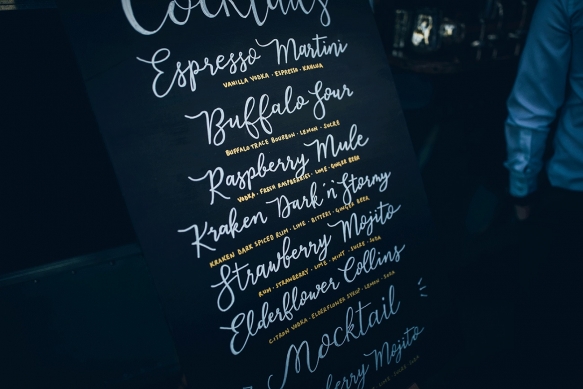 Cocktails
Espresso Martini
VANILLA VODKA · ESPRESSO · KAHLUA
Buffalo Sour
BUFFALO TRACE BOURBON · LEMON · SUCRE
Raspberry Mule
VODKA · FRESH RASPBERRIES · LIME · GINGER BEER
Kraken Dark 'n' Stormy
KRAKEN DARK SPICED RUM · LIME · BITTERS · GINGER BEER
Strawberry Mojito
RUM · STRAWBERRY · LIME · MINT · SUCRE · SODA
Elderflower Collins
CITRON VODKA · ELDERFLOWER SYRUP · LEMON · SODA
Mocktail
Mojito